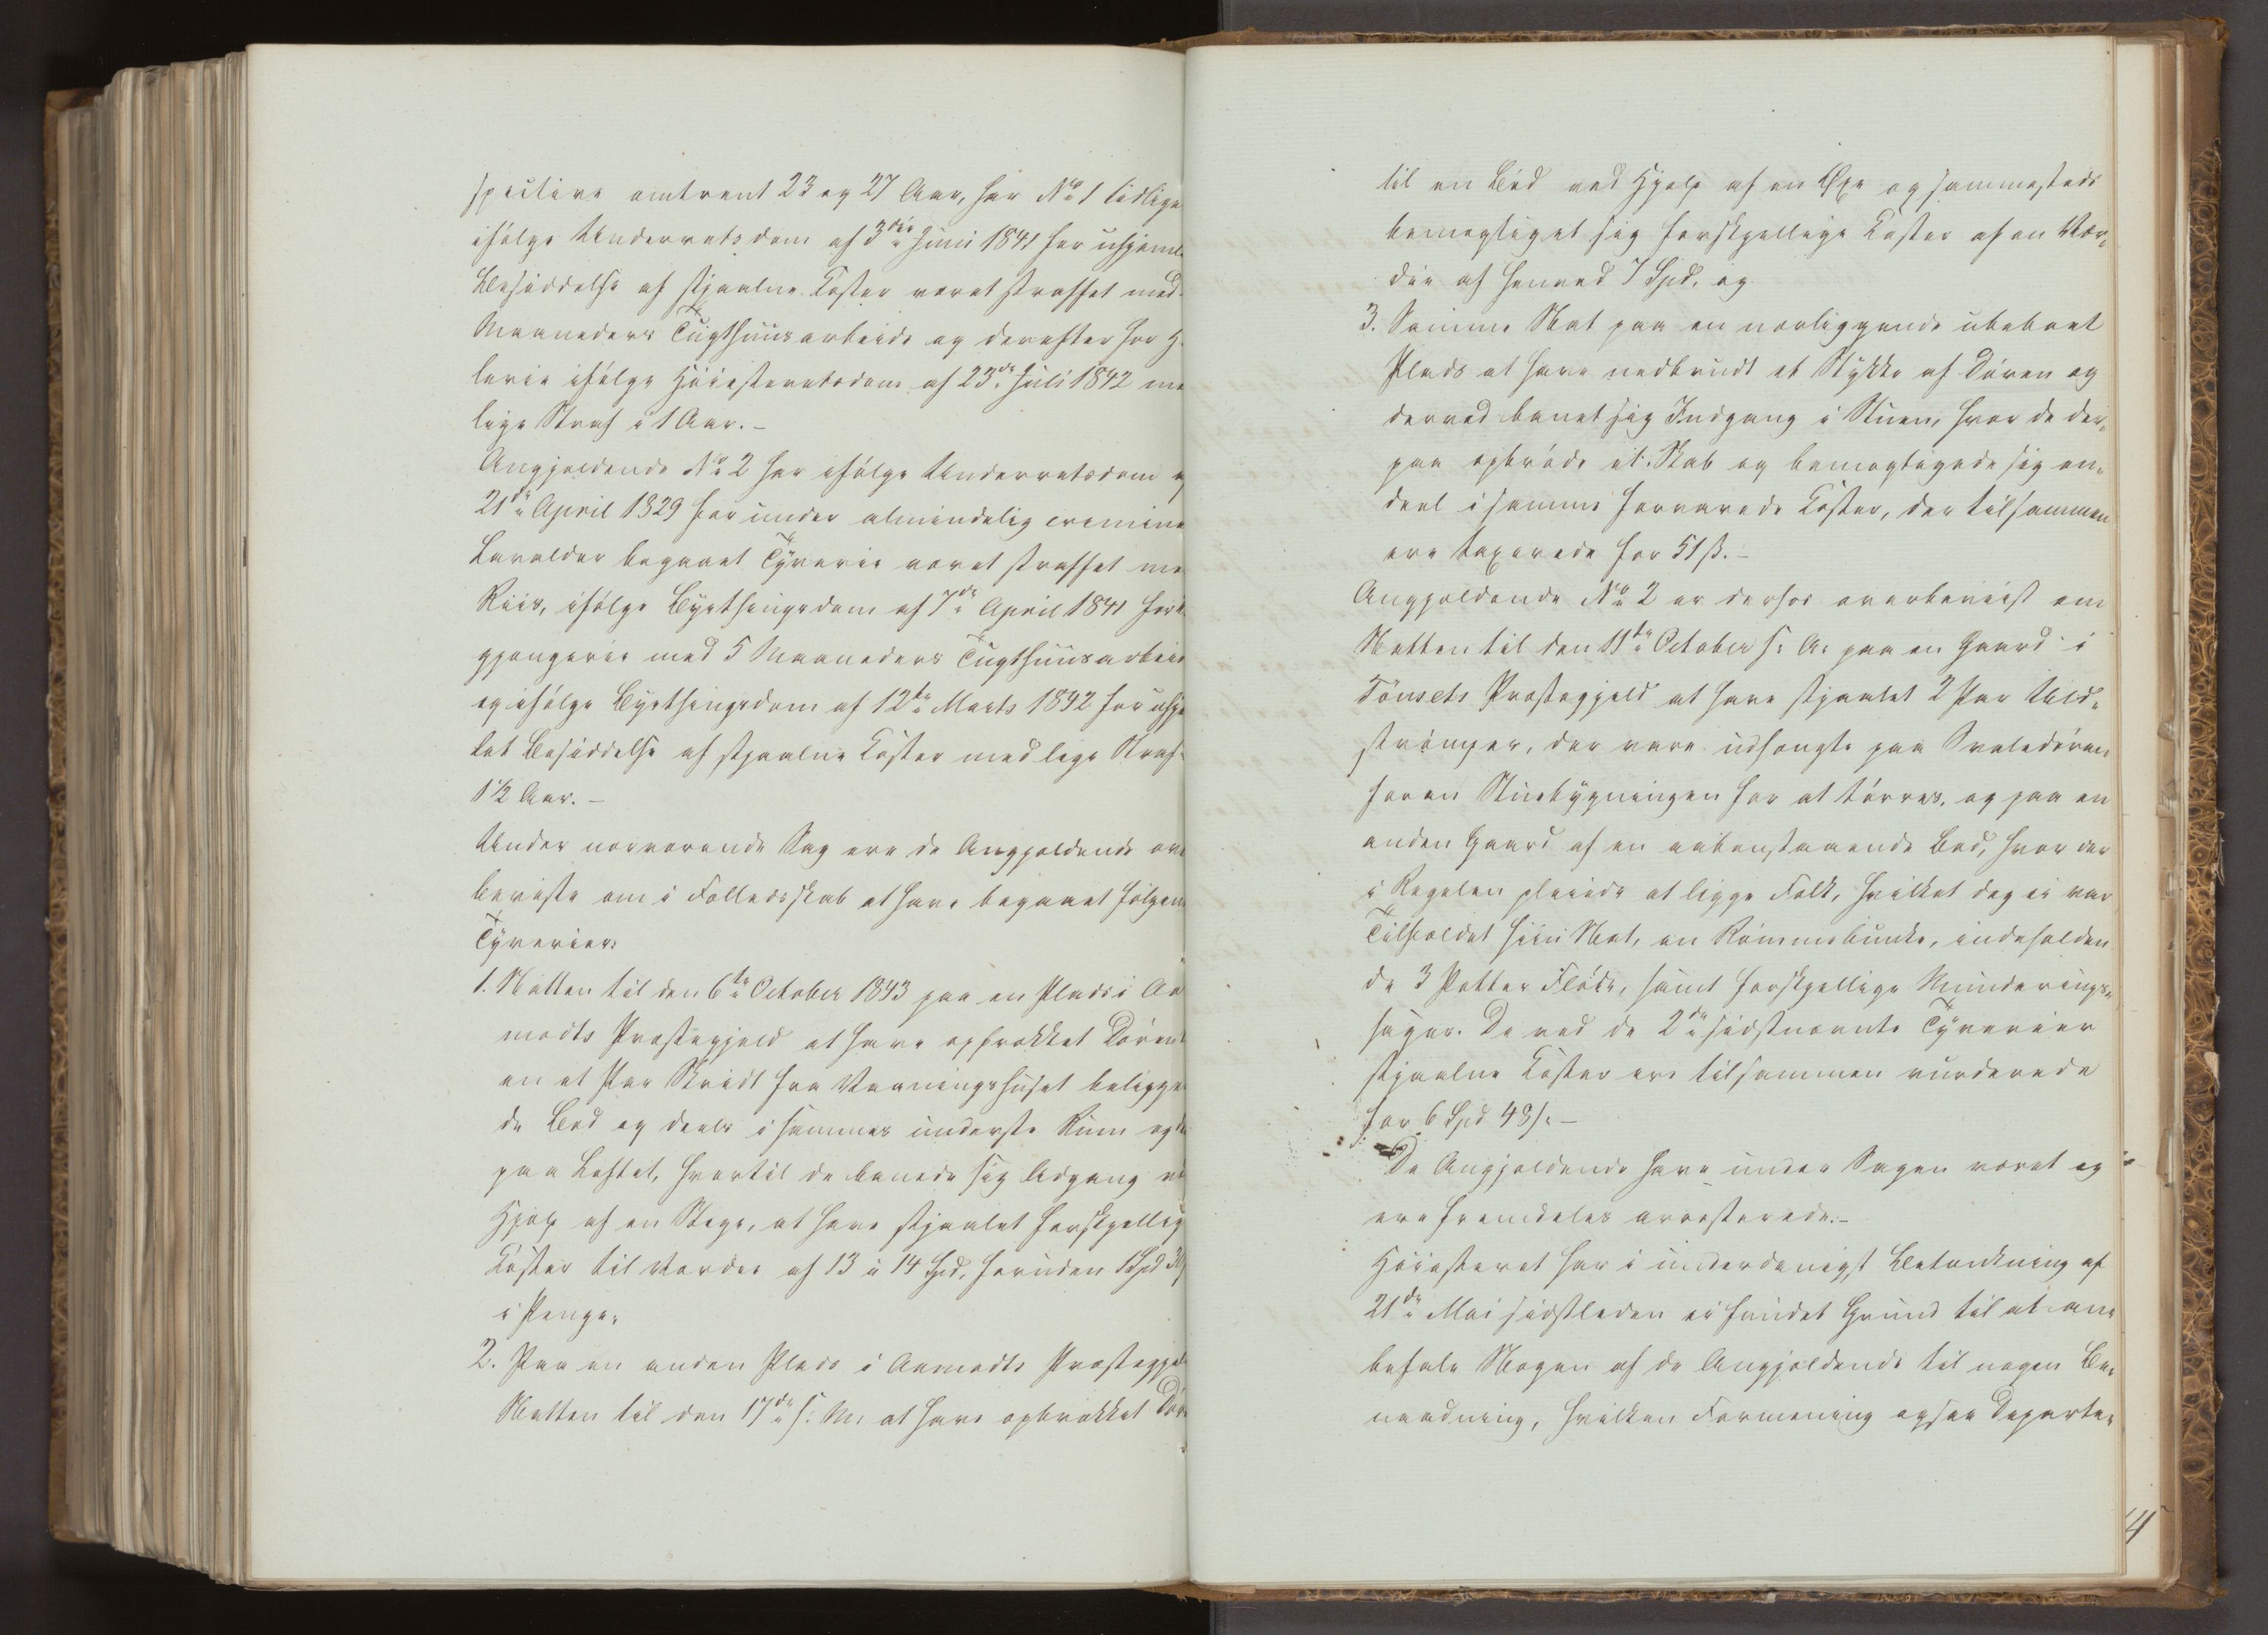 spective omtrent 23 og 27 Aar, har No 1 tidlige
ifølge Underretsdom af 3die Juni 1841 for uhjeml
Besiddelse af stjaalne Koster været straffet med
Maaneders Tugthuusarbeide og derefter for H
leri ifølge Høiesteretsdom af 23de Juli 1842 me
lige Straf i 1 Aar. –
Angjældende No 2 har ifølge Underretsdom af
21de April 1829 for under almindelig crimine
Lavalder begaaet Tyverie været straffet me
Riis, ifølge Byethingsdom af 7de April 1841 for
gjængerie med 5 Maaneders Tugthuusarbeid
og ifølge Byethingsdom af 12te Marts 1842 for uhje
let Besiddelse af stjaalne Koster med lige Straf
1½ Aar. –
Under nærværende Sag ere de Angjældende ove
beviste om i Fælledsskab at have begaaet følgen
Tyverier:
1. Natten til den 6te October 1843 paa en Plads i Aa
modts Præstegjeld at have opbrækket Døren
en et Par Skridt fra Vaaningshuset beligge
de Bod og deels i sammes underste Rum og
paa Loftet, hvortil de banede sig Adgang ve
Hjelp af en Stege, at have stjaalet forskjellig
Koster til Værdie af 13 a 14 Spd, foruden 1 Spd
i Penge,
2. Paa en anden Plads i Aamodts Præstegjel
Natten til den 17de s: M: at have opbrækket Dør
til en Bod ved Hjelp af en Øxe og sammesteds
bemægtiget sig forskjellige Koster af en Vær„
die af henved 7 Spd. og
3. Samme Nat paa en nærliggende ubeboet
Plads at have nedbrudt et Stykke af Døren og
derved banet sig Indgang i Stuen, hvor de der„
paa opbrøde et Skab og bemægtigede sig en„
deel i samme forvarede Koster, der tilsammen
ere taxerede for 51 ß. –
Angjældende No 2 er derhos overbeviist om
Natten til den 11te October s: A: paa en Gaard i
Tönsets Præstegjeld at have stjaalet 2 Par Uld„
strømper, der vare udhængte paa Svaledøren
foran Stuebygningen for at tørres, og paa en
anden Gaard af en aabenstaaende Bod, hvor der
i Regelen pleiede at ligge Folk, hvilket dog ei var
Tilfældet hiin Nat, en Rømmebunke, indeholden
de 3 Potter Fløde, samt forskjellige Munderings„
sager. De ved de 2de sidstnævnte Tyverier
stjaalne Koster ere tilsammen vurderede
for 6 Spd 43 ß. –
De Angjældende have under Sagen været og
ere fremdeles arresterede. –
Høiesteret har i underdanigst Betænkning af
21de Mai sidstleden ei fundet Grund til at an„
befale Nogen af de Angjældende til nogen Be„
naadning, hvilken Formening ogsaa Departe„